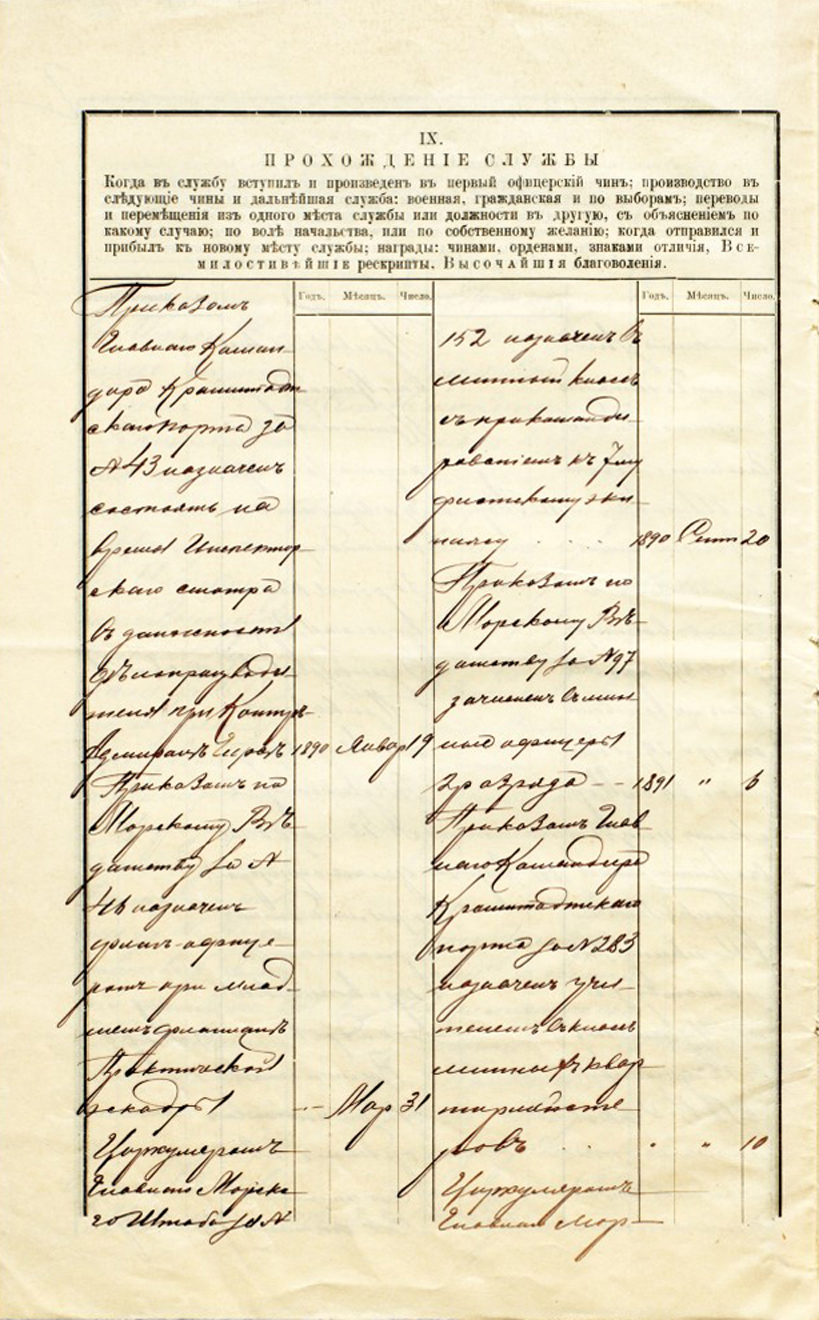 IX.
ПРОХОЖДЕНІЕ СЛУЖБЫ
Когда въ службу вступилъ и произведенъ въ первый офицерскій чинъ; производство въ
слѣдующіе чины и дальнѣйшая служба: военная, гражданская и по выборамъ; переводы
и перемѣщенія изъ одного мѣста службы или должности въ другую, съ объясненіемъ по
какому случаю; по волѣ начальства, или по собственному желанію; когда отправился и
прибылъ къ новому мѣсту службы; награды: чинами, орденами, знаками отличія, Все-
милостивѣйшіе рескрипты, Высочайшія благоволенія.
Годъ. Мѣсяцъ. Число.
Приказомъ
Главнаго Коман
дира Кронштадт
скаго порта за
№ 43 назначенъ
состоять на
время Инспектор
скаго смотра
въ должности
дѣлопроизводи
теля при Контръ
Адмиралѣ 1890 Январ 19
Приказомъ по
Морскому Вѣ
домству за №
46 назначенъ
флагъ-офице
ромъ при млад
шемъ флагманѣ
Практической
эскадры Мар 31
Циркуляромъ
Главнаго Морска
го Штаба за №
Годъ. Мѣсяцъ. Число.
152 назначенъ въ
минный классъ
съ прикоманди
рованіемъ къ 7му
флотскому эки
пажу 1890 Сент 20
Приказомъ по
Морскому Вѣ
домству за № 97
зачисленъ въ мин
ные офицеры
2 разряда 1891 " 6
Приказомъ Глав
наго Командира
Кронштадтскаго
порта за № 283
назначенъ учи
телемъ въ классъ
минныхъ квар
тирмейсте
ровъ " " 10
Циркуляромъ
Главнаго Мор